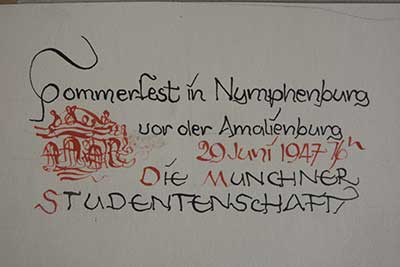 Sommerfest in Nymphenburg
vor der Amalienburg
29 Juni 1947
DIE MUNCHNER
STUDENTENSCHAFT